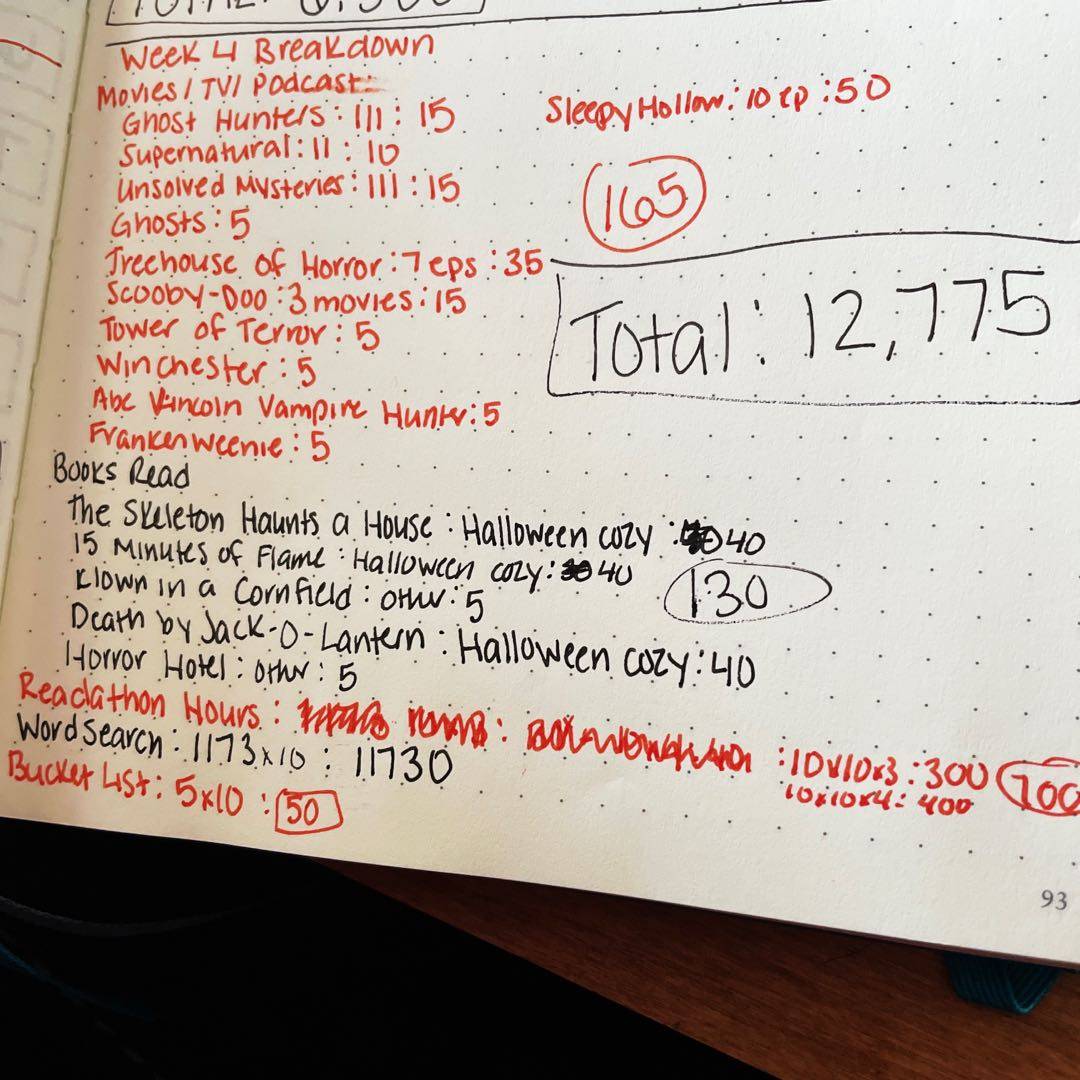 Total: 6,500
Week 4 Breakdown
Movies/TV/Podcast:
Ghost Hunters: III : 15
Supernatural: II : 10
Unsolved Mysteries: III : 15
Ghosts: 5
Treehouse of Horror: 7 eps: 35
Scooby-Doo: 3 movies: 15
Tower of Terror: 5
Winchester: 5
Abe Vincoln Vampire Hunter: 5
Frankenweenie: 5
Sleepy Hollow: 10 ep: 50
165
Total: 12,775
Books Read
The Skeleton Haunts a House: Halloween cozy: 40
15 Minutes of Flame: Halloween cozy: 40
Klown in a Cornfield: other: 5
Death by Jack-O-Lantern: Halloween cozy: 40
Horror Hotel: other: 5
130
Readathon Hours: : :10x10x3: 300
10x10x4: 400
700
Word Search: 1173x10: 11730
Bucket List: 5x10: 50
93